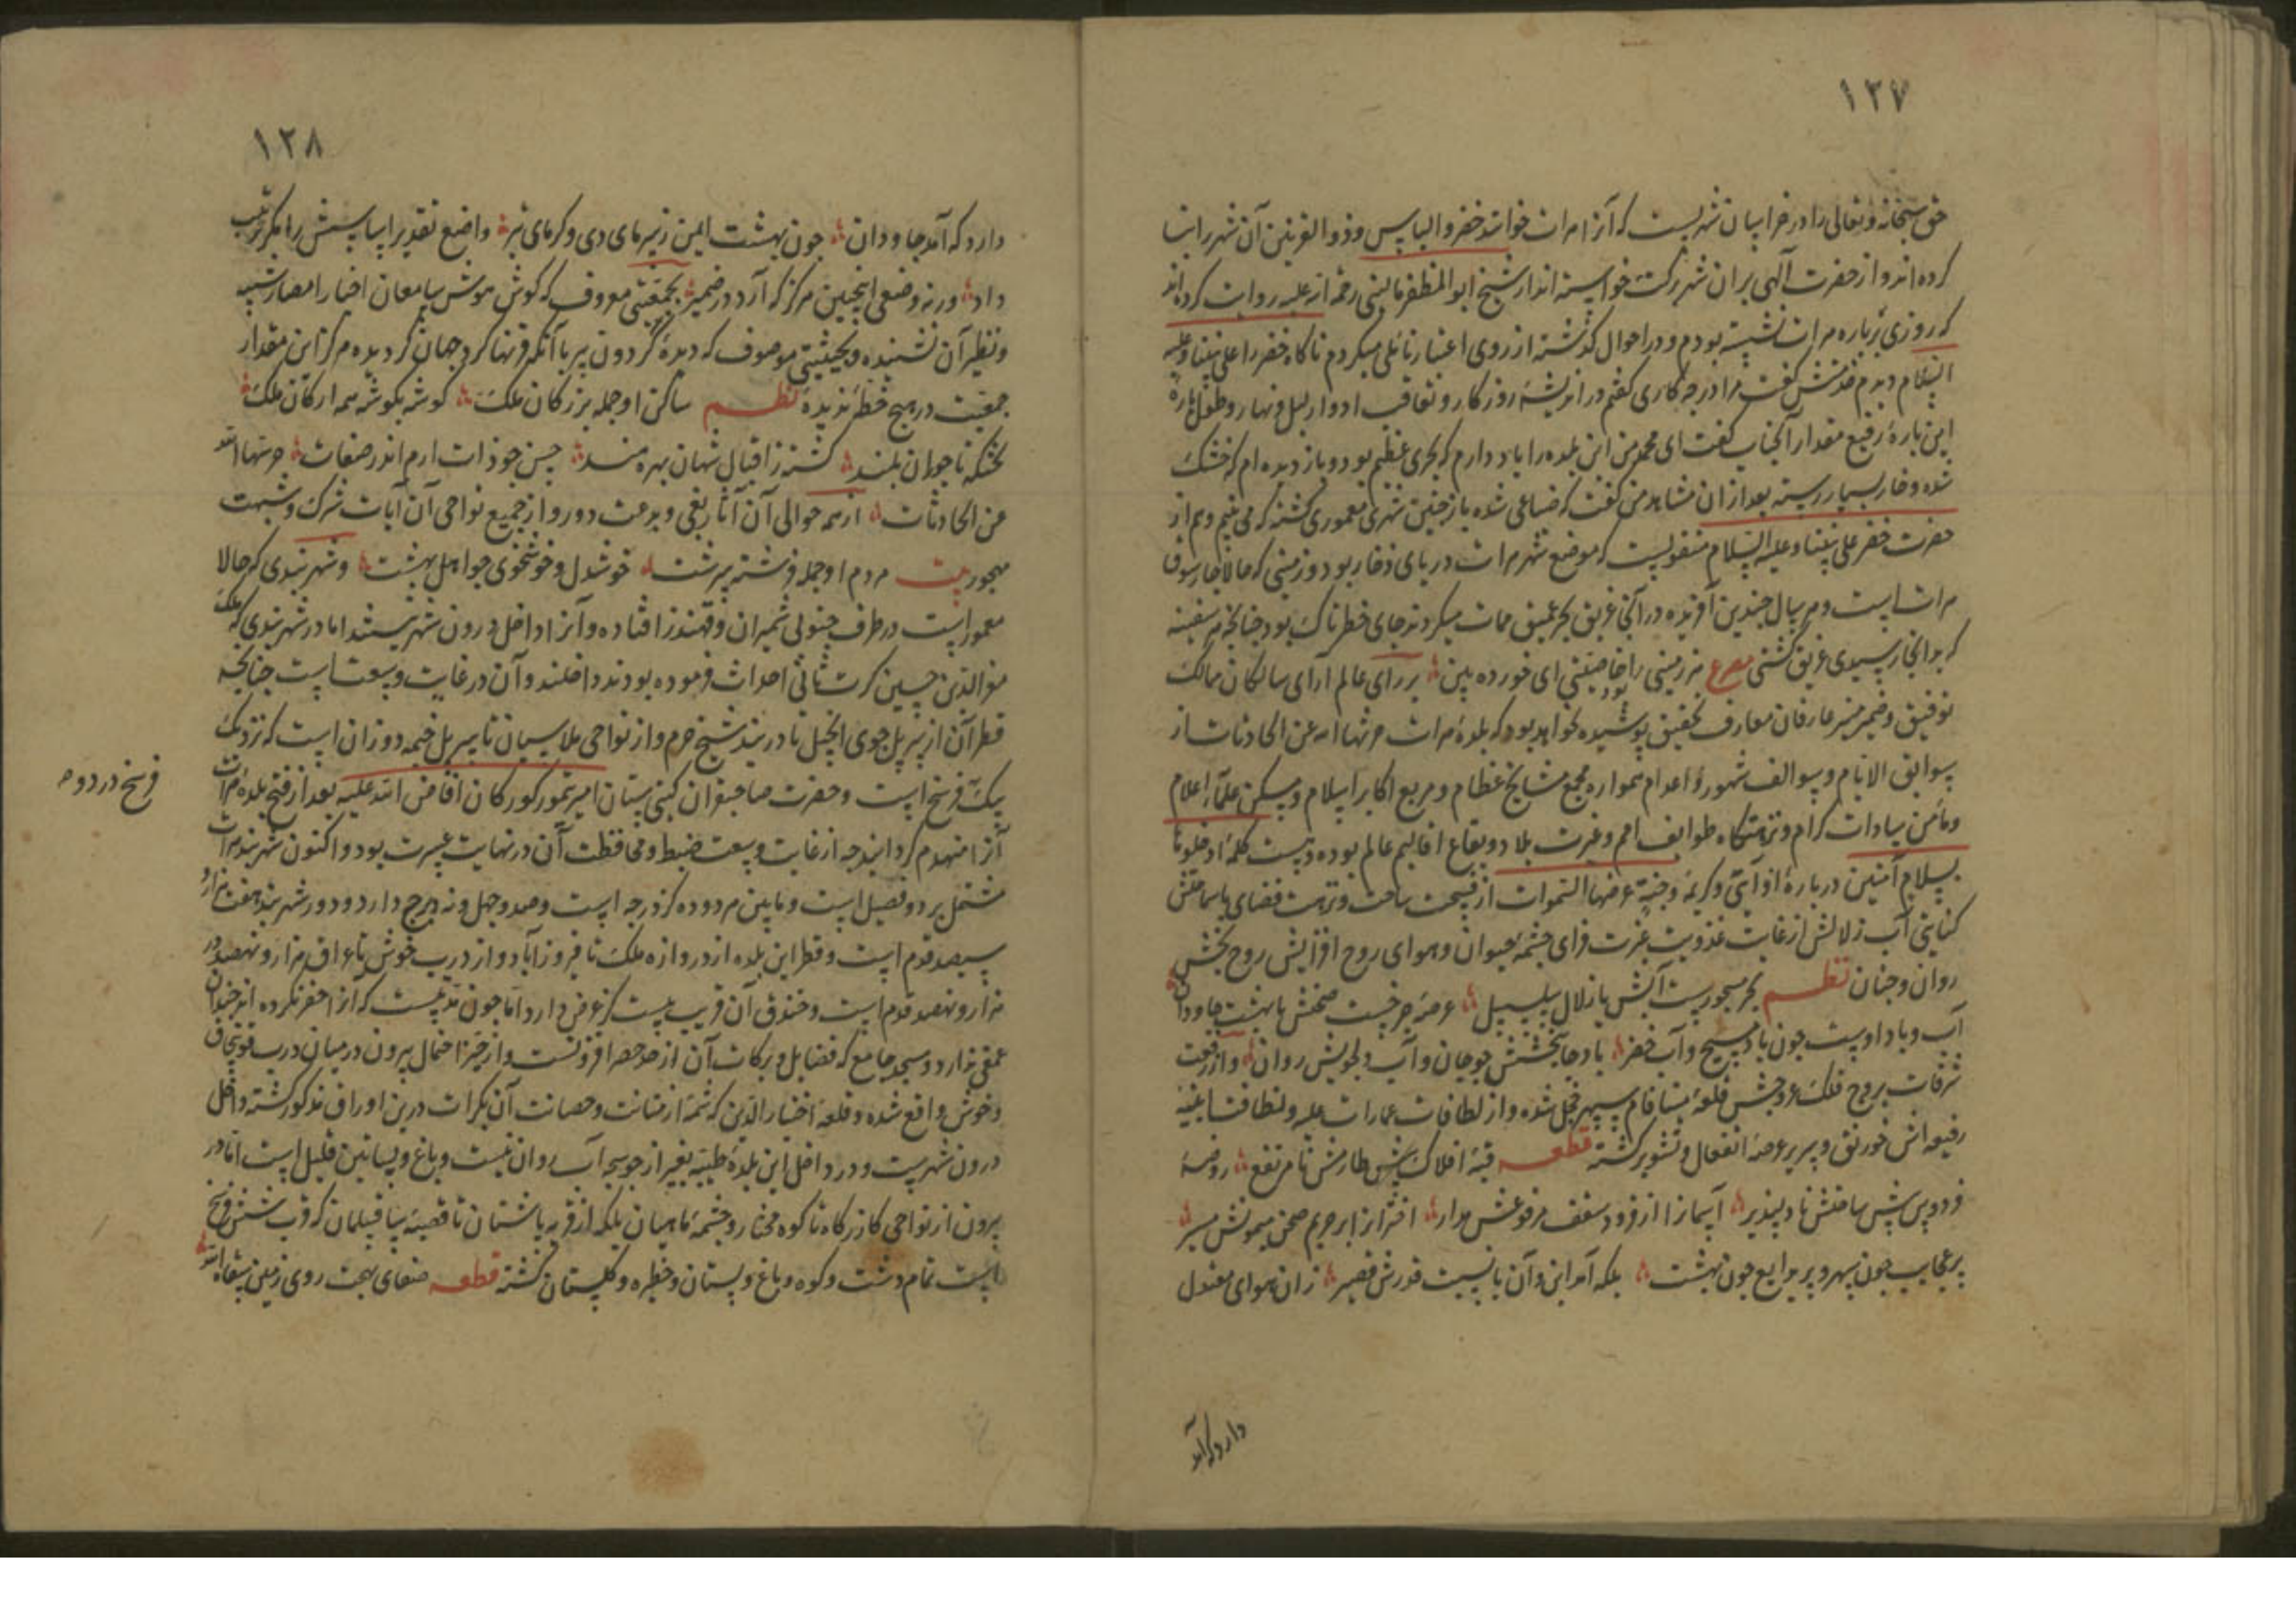 ۱۲۷
حق سبحانه و تعالی را در خراسان شهریست که آنرا هرات خوانند خضر و الیاس و ذو القرنین آن شهر را بنا
کرده اند و از حضرت الهی بران شهر برکت خواسته اند از شیخ ابو المظفر مالینی رحمة الله علیه روایت کرده اند
که روزی بر باره هرات نشسته بودم و در احوال گذشته از روی اعتبار تأملی میکردم ناگاه خضر را علی نبینا و علیه
السلام دیدم گفت مرا در چه کاری گفتم در اندیشهٔ روزگار و تعاقب ادوار لیل و نهار و طول بارهٔ
این بارهٔ رفیع مقدار آنجناب گفت ای محمد من این بلده را یاد دارم که بحری عظیم بود و باز دیده ام که خشک
شده و خار بسیار رسته بعد از ان مشاهد من گفت که ضیاعی شده باز چنین شهری معموری گشته که می بینم و هم از
حضرت خضر علی نبینا و علیه السلام منقولیست که موضع شهر هرات دریای ذخار بود و زمینی که حالا چارسوق
هرات است و هر سال چندین آفریده در آنجا غریق بحر عمیق ممات میکردند جای خطرناک بود چنانچه هر سفینه
که بدانجا رسیدی غریق گشتی مصرع هر زمینی را خاصیتی ای خورده بین بر رای عالم آرای سالکان ممالک
توفیق و ضمیر منیر عارفان معارف تحقیق پوشیده نخواهد بود که بلدهٔ هرات حرسها الله عن الحادثات از
سوابق الایام و سوالف شهور و اعوام همواره مجمع مشایخ عظام و مربع اکابر اسلام و مسکن علمآء اعلام
و مأمن سادات کرام و نزهتگاه طوایف امم و غیرت بلاد و بقاع اقالیم عالم بوده و هست کلمهٔ ادخلوها
بسلام آمنین در بارهٔ او آیتی و کریمهٔ و جنة عرضها السموات از فسحت ساحت و نزهت فضای باساحتش
کنایتی آب زلالش از غایت عذوبت غیرت فزای چشمه حیوان و هوای روح افزایش روح بخش
روان و جنان نظم بحر مسجورست آبش یا زلال سلسبیل عرصهٔ چرخست صحنش یا بهشت جاودان
آب و باد اوست چون باد مسیح و آب خضر باد جانبخشش چو جان و آب دلجویش روان و از رفعت
شرفات بروج فلک عروجش قلعهٔ مینا فام سپهر خجل شده و از لطافات عمارات علیه و نظافت ابنیهٔ
رفیعه اش خورنق و سدیر عرصهٔ انفعال و تشویر گشته قطعه قبهٔ افلاک پیش طارمش نا مرتفع روضهٔ
فردوس پیش ساحتش نادلپذیر آسمانرا از فرود سقف مرفوعش مدار اختر انرا بر حریم صحن میمونش مسیر
پر عجایب چون سپهر و پر بدایع چون بهشت بلکه آمد این و آن با نسبت قدرش قصیر زان هوای معتدل
دارد که آمد
۱۲۸
دارد که آمد جاودان چون بهشت ایمن ز سرمای دی و گرمای تیر واضع تقدیر اساسش را مکر ترتیب
داد ورنه وضعی اینچنین هرگز که آرد در ضمیر بجمعیتی معروف که گوش هوش سامعان اخبار امصار شبیه
و نظیر آن نشنیده و بحیثیتی موصوف که دیدهٔ گردون پیر با آنکه قرنها گرد جهان گردیده هرگز این مقدار
جمعیت در هیچ خطهٔ ندیده نظم ساکن او جمله بزرگان ملک گوشه بگوشه همه ارکان ملک
تختگه تاجوران بلند گشته ز اقبال شهان بهره مند حسن چو ذات ارم اندر صفات حرسها الله
عن الحادثات از همه حوالی آن آثار بغی و بدعت دور و از جمیع نواحی آن آیات شرک و شبهت
مهجور بیت مردم او جمله فرشته سرشت خوشدل و خوشخوی چو اهل بهشت و شهر بندی که حالا
معمور است در طرف جنوبی شمیران و قهندز افتاده و آنرا داخل درون شهر نیستند اما در شهر بندی که ملک
معز الدین حسین کرت ثانی احداث فرموده بودند داخلند و آن در غایت وسعت است چنانچه
قطر آن از سر پل جوی انجیل تا دربند شیخ خرم و از نواحی ملاسیان تا سر پل خیمه دوزان است که نزدیک
یک فرسخ است و حضرت صاحبقران گیتی ستان امیر تیمور کورکان افاض الله علیه بعد از فتح بلدهٔ هرات
آنرا منهدم گردانید چه از غایت وسعت ضبط و محافظت آن در نهایت عسرت بود و اکنون شهر بند هرات
مشتمل بر دو فصیل است و ما بین هر دو ده گز درجه است و صد و چهل و نه برج دارد و دور شهر بند هفت هزار و
سیصد قدم است و قطر این بلده از دروازه ملک تا فیروزآباد و از درب خوش تا عراق هزار و نهصد در
هزار و نهصد قدم است و خندق آن قریب بیست گز عرض دارد اما چون مدتیست که آنرا حفر نکرده اند چندان
عمقی ندارد و مسجد جامع که فضایل و برکات آن از حد حصر افزونست و از حیز احتمال بیرون در میان درب قوچاق
و خوش واقع شده و قلعهٔ اختیار الدین که شمهٔ از متانت و حصانت آن بکرات درین اوراق مذکور گشته داخل
درون شهرست و در داخل این بلدهٔ طیبه بغیر از جوبچه آب روان نیست و باغ و بساتین قلیل است اما در
بیرون از نواحی گازرگاه تا کوه مختار و چشمهٔ ماهیان بلکه از قریه باشتان تا قصبهٔ ساقسلمان که قرب شش فرسخ
است تمام دشت و کوه و باغ و بستان و حظیره و گلستان گشته قطعه صفحای بهجت روی زمین سقاه الله
فرسخ در دو م